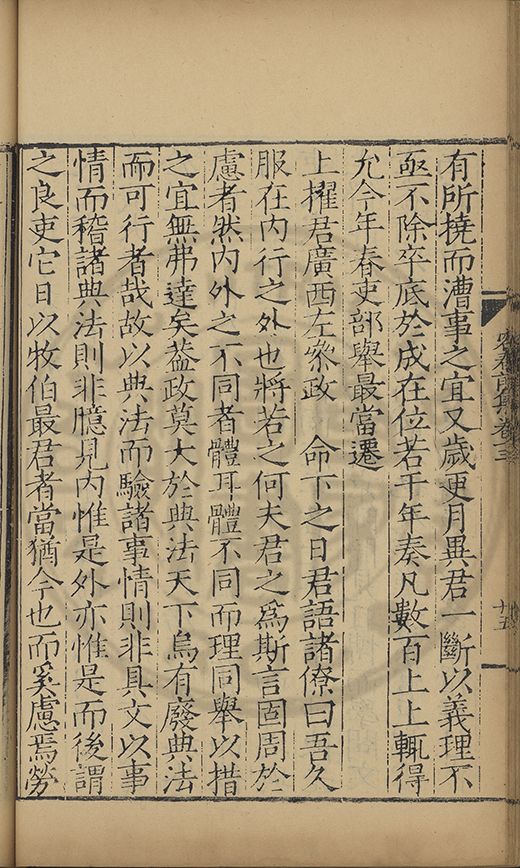 有所撓而漕事之宜又歲更月異君一斷以義理不
亟不除卒底於成在位若干年奏凡數百上上輒得
允今年春吏部舉最當遷
上擢君廣西左叅政　命下之日君語諸僚曰吾久
服在內行之外也將若之何夫君之爲斯言固周於
慮者然內外之不同者體耳體不同而理同舉以措
之宜無弗達矣葢政莫大於典法天下烏有廢典法
而可行者哉故以典法而驗諸事情則非具文以事
情而稽諸典法則非臆見內惟是外亦惟是而後謂
之良吏它日以牧伯最君者當猶今也而奚慮焉勞
卷三
十五